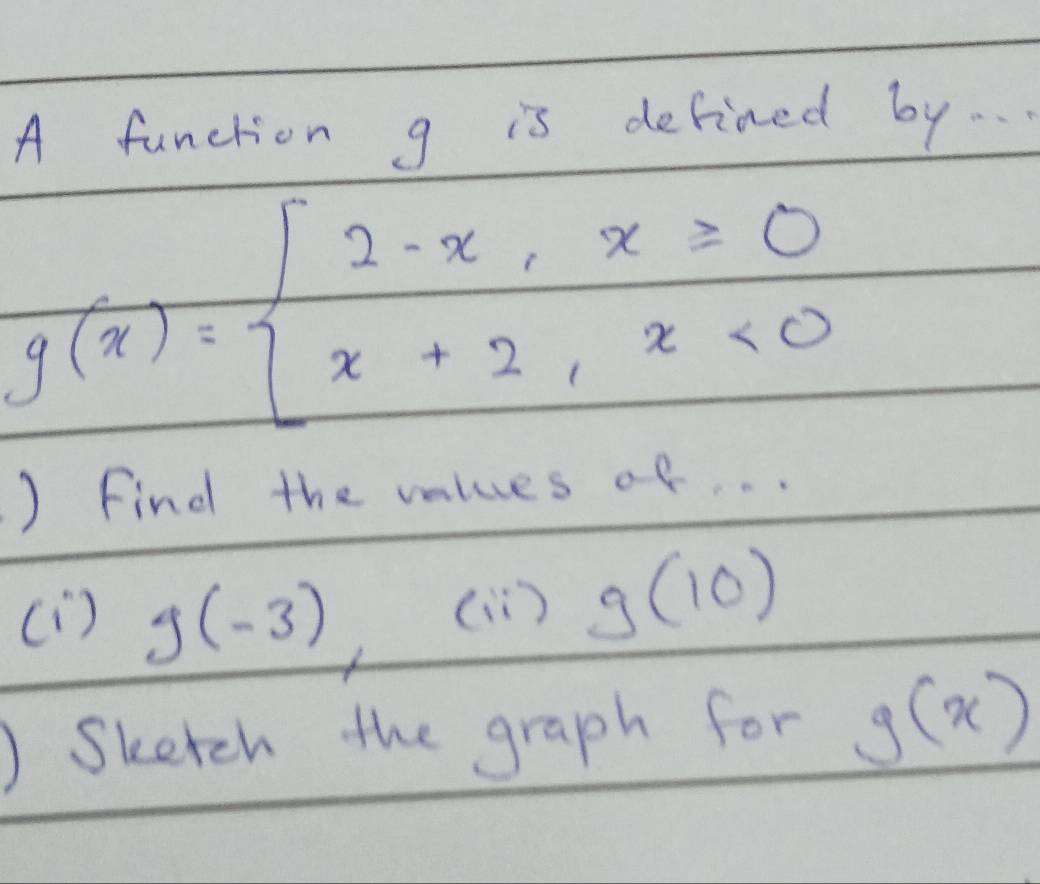 A function g is defined by...
g(x) = { 2 - x , x ≥ 0
x + 2 , x < 0
.) Find the values of...
(i) g(-3), (ii) g(10)
) Sketch the graph for g(x)